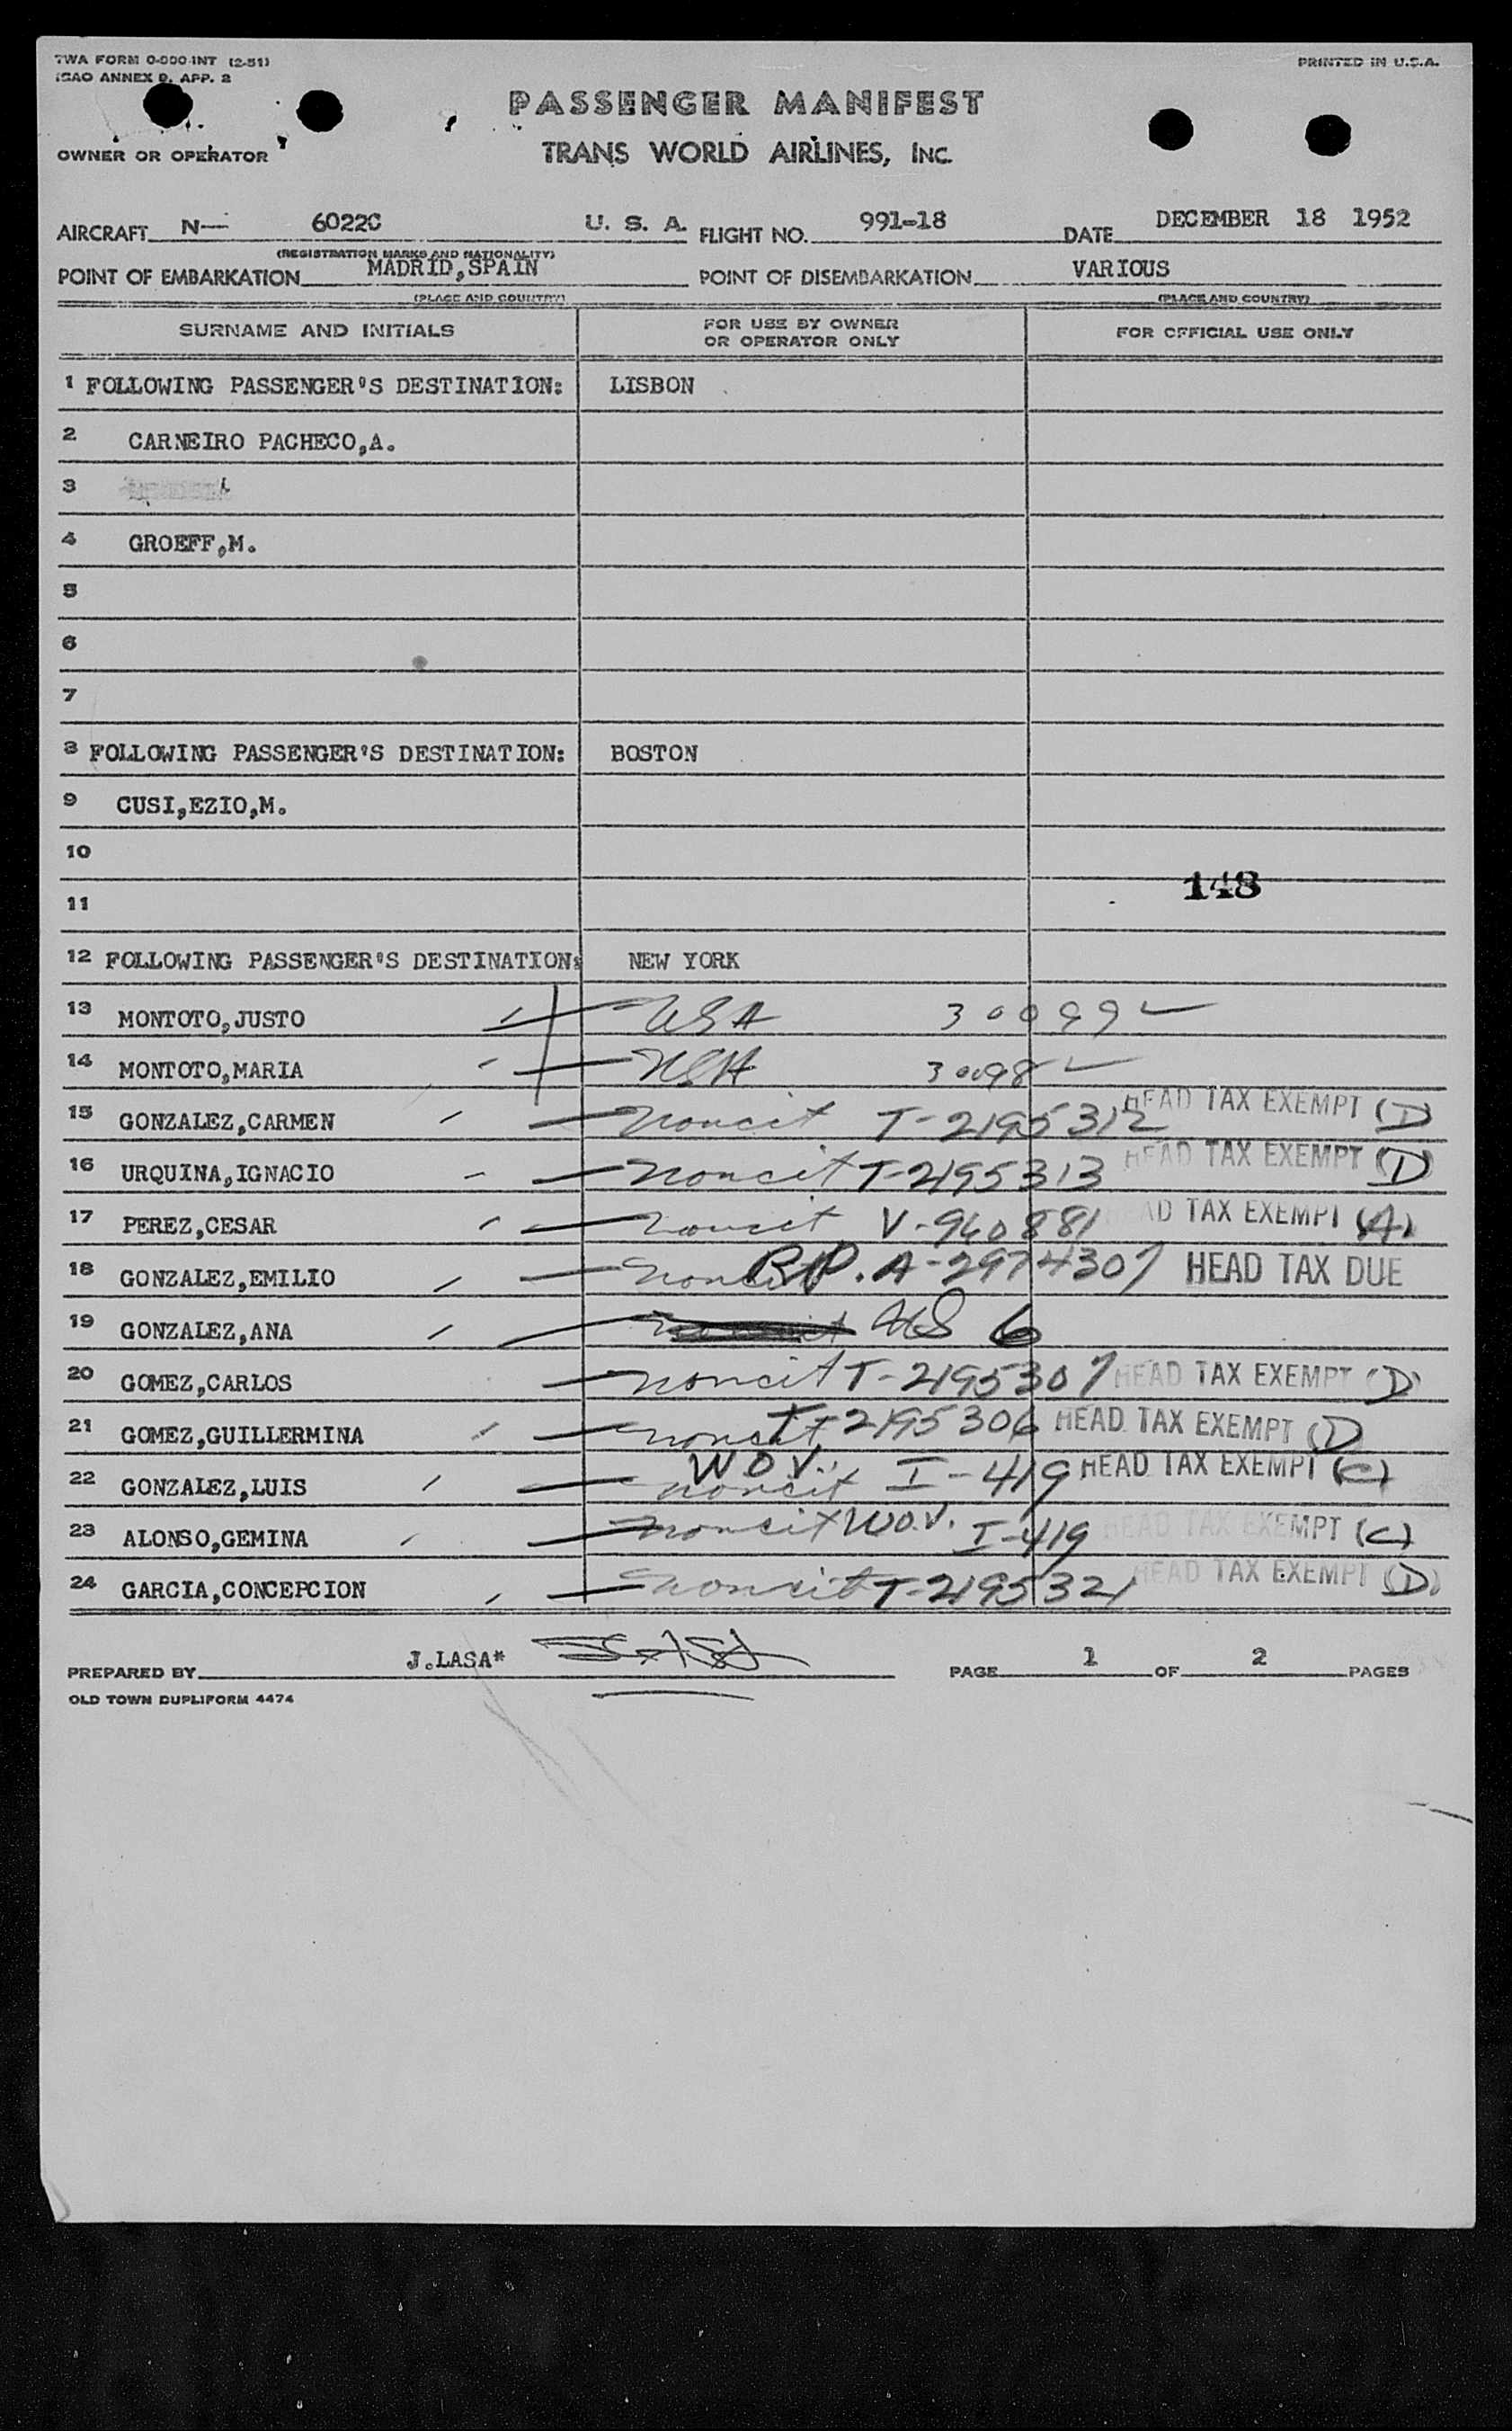 TWA FORM 0-000-INT (2-51)
ICAO ANNEX 9, APP. 2
PRINTED IN U.S.A.
PASSENGER MANIFEST
OWNER OR OPERATOR
TRANS WORLD AIRLINES, INC.
AIRCRAFT N— 6022C U. S. A. FLIGHT NO. 991-18 DATE DECEMBER 18 1952
(REGISTRATION MARKS AND NATIONALITY)
POINT OF EMBARKATION MADRID,SPAIN POINT OF DISEMBARKATION VARIOUS
(PLACE AND COUNTRY) (PLACE AND COUNTRY)
SURNAME AND INITIALS FOR USE BY OWNER OR OPERATOR ONLY FOR OFFICIAL USE ONLY
1 FOLLOWING PASSENGER'S DESTINATION: LISBON
2 CARNEIRO PACHECO,A.
3
4 GROEFF,M.
5
6
7
8 FOLLOWING PASSENGER'S DESTINATION: BOSTON
9 CUSI,EZIO,M.
10
148
11
12 FOLLOWING PASSENGER'S DESTINATION: NEW YORK
13 MONTOTO,JUSTO USA 30099
14 MONTOTO,MARIA USA 30098
15 GONZALEZ,CARMEN noncit T-2195312 HEAD TAX EXEMPT (D)
16 URQUINA,IGNACIO noncit T-2195313 HEAD TAX EXEMPT (D)
17 PEREZ,CESAR noncit V-960881 HEAD TAX EXEMPT (A)
18 GONZALEZ,EMILIO noncit R.P. A-2974307 HEAD TAX DUE
19 GONZALEZ,ANA noncit US 6
20 GOMEZ,CARLOS noncit T-2195307 HEAD TAX EXEMPT (D)
21 GOMEZ,GUILLERMINA noncit T-2195306 HEAD TAX EXEMPT (D)
22 GONZALEZ,LUIS noncit W.O.V. I-419 HEAD TAX EXEMPT (C)
23 ALONSO,GEMINA noncit W.O.V. I-419 HEAD TAX EXEMPT (C)
24 GARCIA,CONCEPCION noncit T-2195321 HEAD TAX EXEMPT (D)
PREPARED BY J.LASA* PAGE 1 OF 2 PAGES
OLD TOWN DUPLIFORM 4474